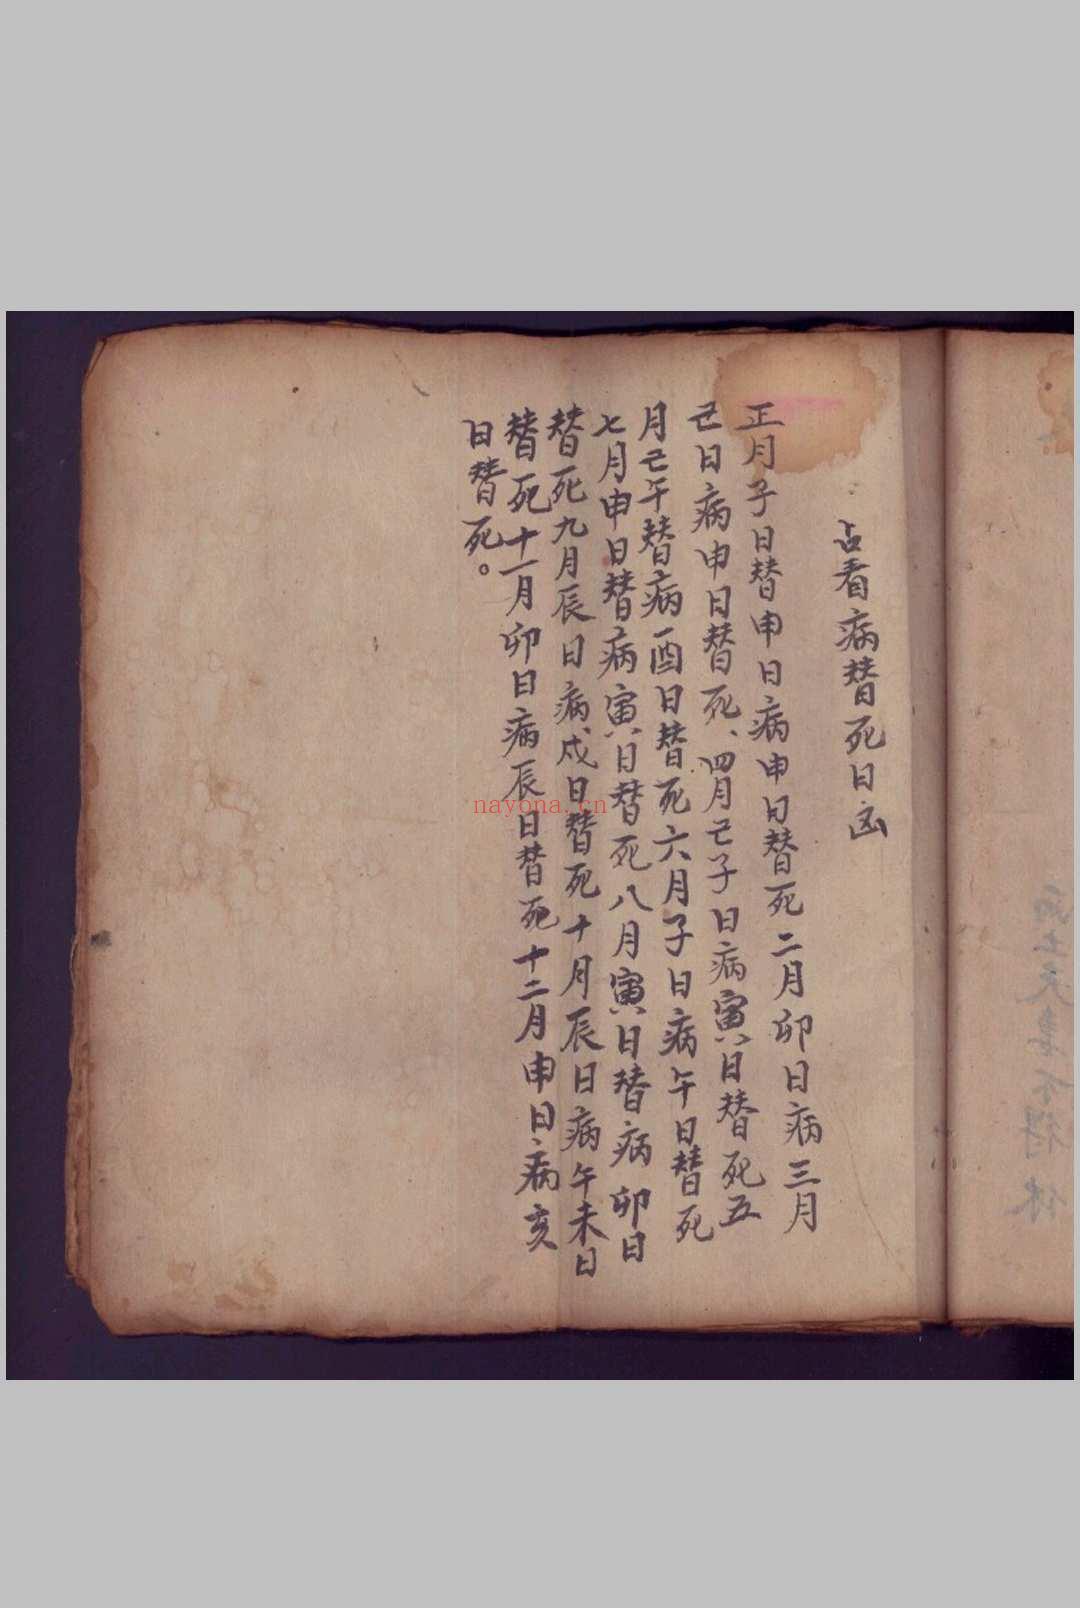 占看病替死日凶
正月子日替申日病申日替死二月卯日病三月
巳日病申日替死、四月巳子日病寅日替死五
月巳午替病酉日替死六月子日病午日替死
七月申日替病寅日替死八月寅日替病卯日
替死九月辰日病、戍日替死十月辰日病午未日
替死十一月卯日病辰日替死十二月申日病亥
日替死。
nayona.cn